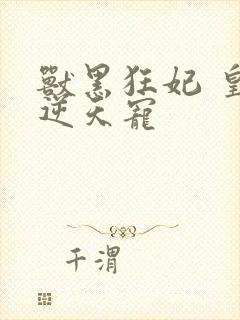 獸黑狂妃 皇
逆天寵
千渭